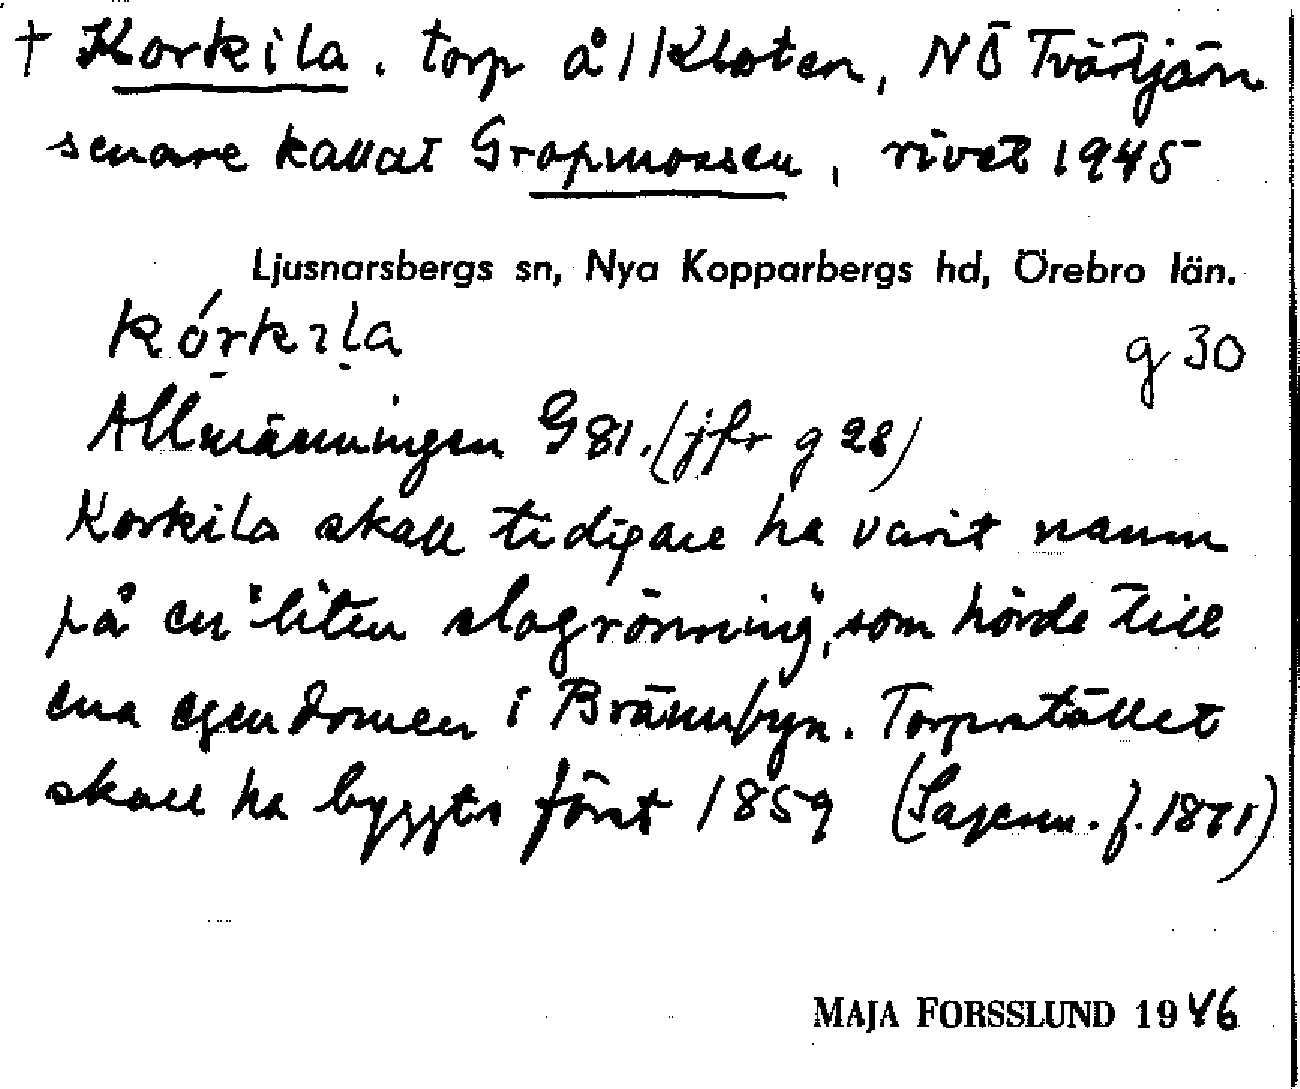 † Korkila. torp å 1 Kloten, NÖ Tvärtjärn
senare kallat Gropmossen, rivet 1945
Ljusnarsbergs sn, Nya Kopparbergs hd, Örebro län.
kórkila
g 30
Allmänningen G 81. (jfr g 28)
Korkila skall tidigare ha varit namn
på en "liten slogrönning", som hörde till
ena egendomen i Brännbyn. Torpstället
skall ha byggts först 1859 (Sagesm. f. 1871)
MAJA FORSSLUND 1946